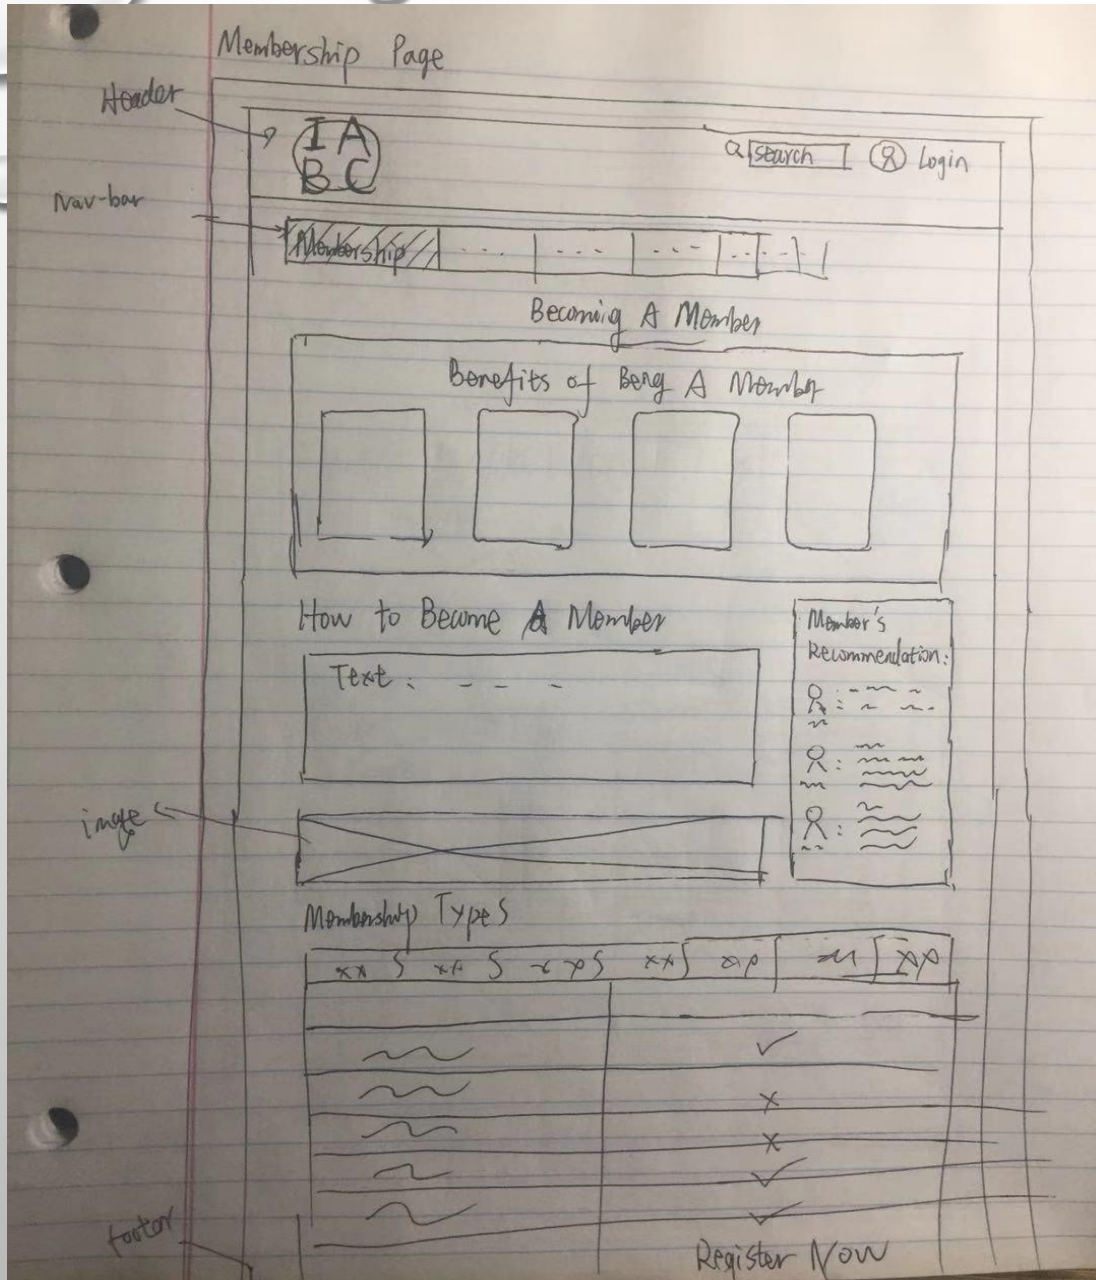 Membership Page
Header
I A
B C
search
Login
Nav-bar
Membership
Becoming A Member
Benefits of Beng A Member
How to Become A Member
Member's
Recommendation:
Text :
image
Membership Types
xx
xx
xx
✓
x
x
✓
✓
footer
Register Now